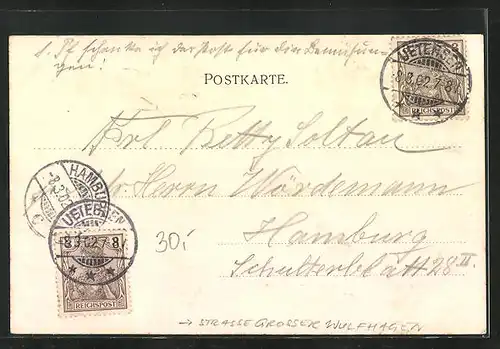 1 Pf schenke ich der Post für den Bemühun-
gen!
POSTKARTE.
UETERSEN
8.3.02.7-8
3
REICHSPOST
Frl. Betty Soltau
Herrn Wördemann
Hamburg
Schulterblatt 28 III.
HAMBURG
8.3.02
UETERSEN
8.3.02.7-8
REICHSPOST
30,-
→ STRASSE GROSSER WULFHAGEN